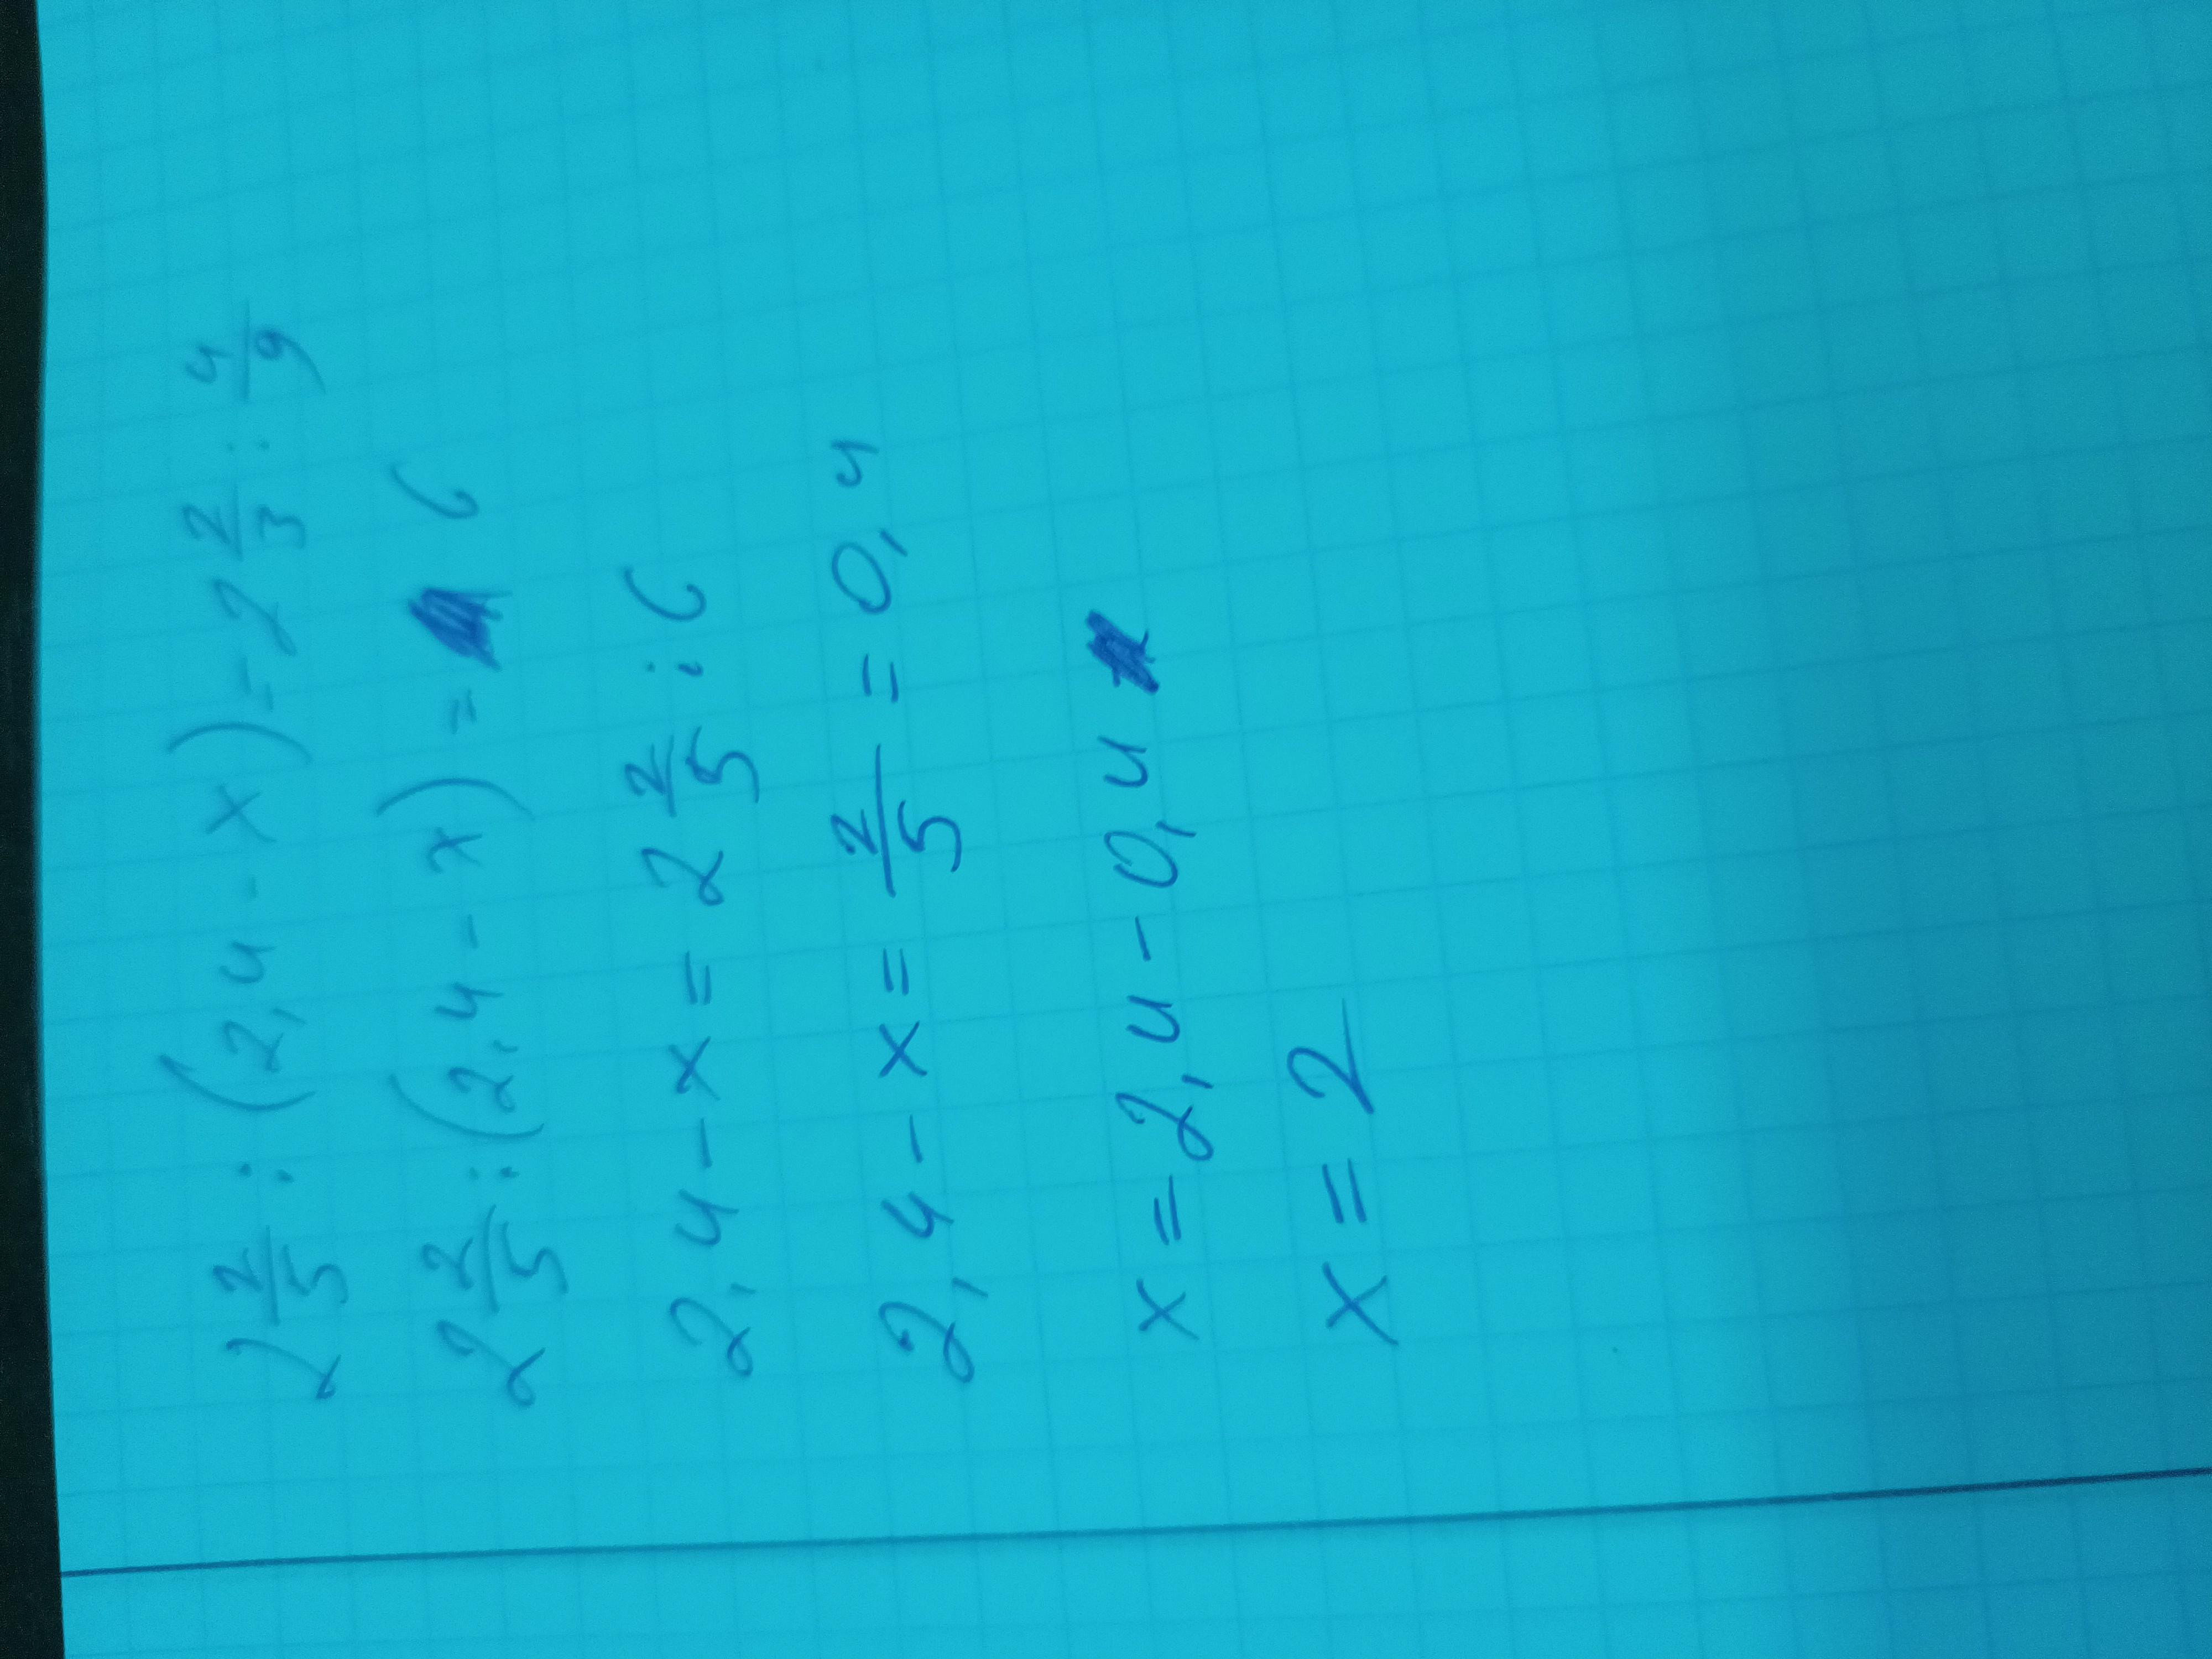 2 2/5 : (2,4 - x) = 2 2/3 : 4/9
2 2/5 : (2,4 - x) = 6
2,4 - x = 2 2/5 : 6
2,4 - x = 2/5 = 0,4
x = 2,4 - 0,4
x = 2